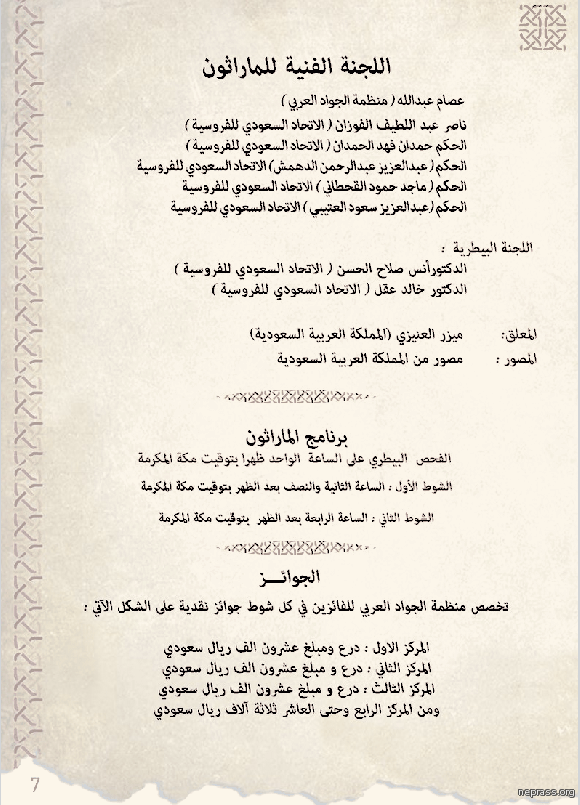 اللجنة الفنية للماراثون
عصام عبدالله ( منظمة الجواد العربي )
ناصر عبد اللطيف الفوزان ( الاتحاد السعودي للفروسية )
الحكم حمدان فهد الحمدان ( الاتحاد السعودي للفروسية )
الحكم ( عبدالعزيز عبدالرحمن الدهمش) الاتحاد السعودي للفروسية
الحكم ( ماجد حمود القحطاني ) الاتحاد السعودي للفروسية
الحكم (عبدالعزيز سعود العتيبي ) الاتحاد السعودي للفروسية
اللجنة البيطرية :
الدكتورأنس صلاح الحسن ( الاتحاد السعودي للفروسية )
الدكتور خالد عقل ( الاتحاد السعودي للفروسية )
المعلق: ميزر العنيزي (المملكة العربية السعودية)
المصور : مصور من المملكة العربية السعودية
برنامج الماراثون
الفحص البيطري على الساعة الواحد ظهرا بتوقيت مكة المكرمة
الشوط الأول : الساعة الثانية والنصف بعد الظهر بتوقيت مكة المكرمة
الشوط الثاني : الساعة الرابعة بعد الظهر بتوقيت مكة المكرمة
الجوائـــز
تخصص منظمة الجواد العربي للفائزين في كل شوط جوائز نقدية على الشكل الآتي :
المركز الاول : درع ومبلغ عشرون الف ريال سعودي
المركز الثاني : درع و مبلغ عشرون الف ريال سعودي
المركز الثالث : درع و مبلغ عشرون الف ريال سعودي
ومن المركز الرابع وحتى العاشر ثلاثة آلاف ريال سعودي
7
neprass.org